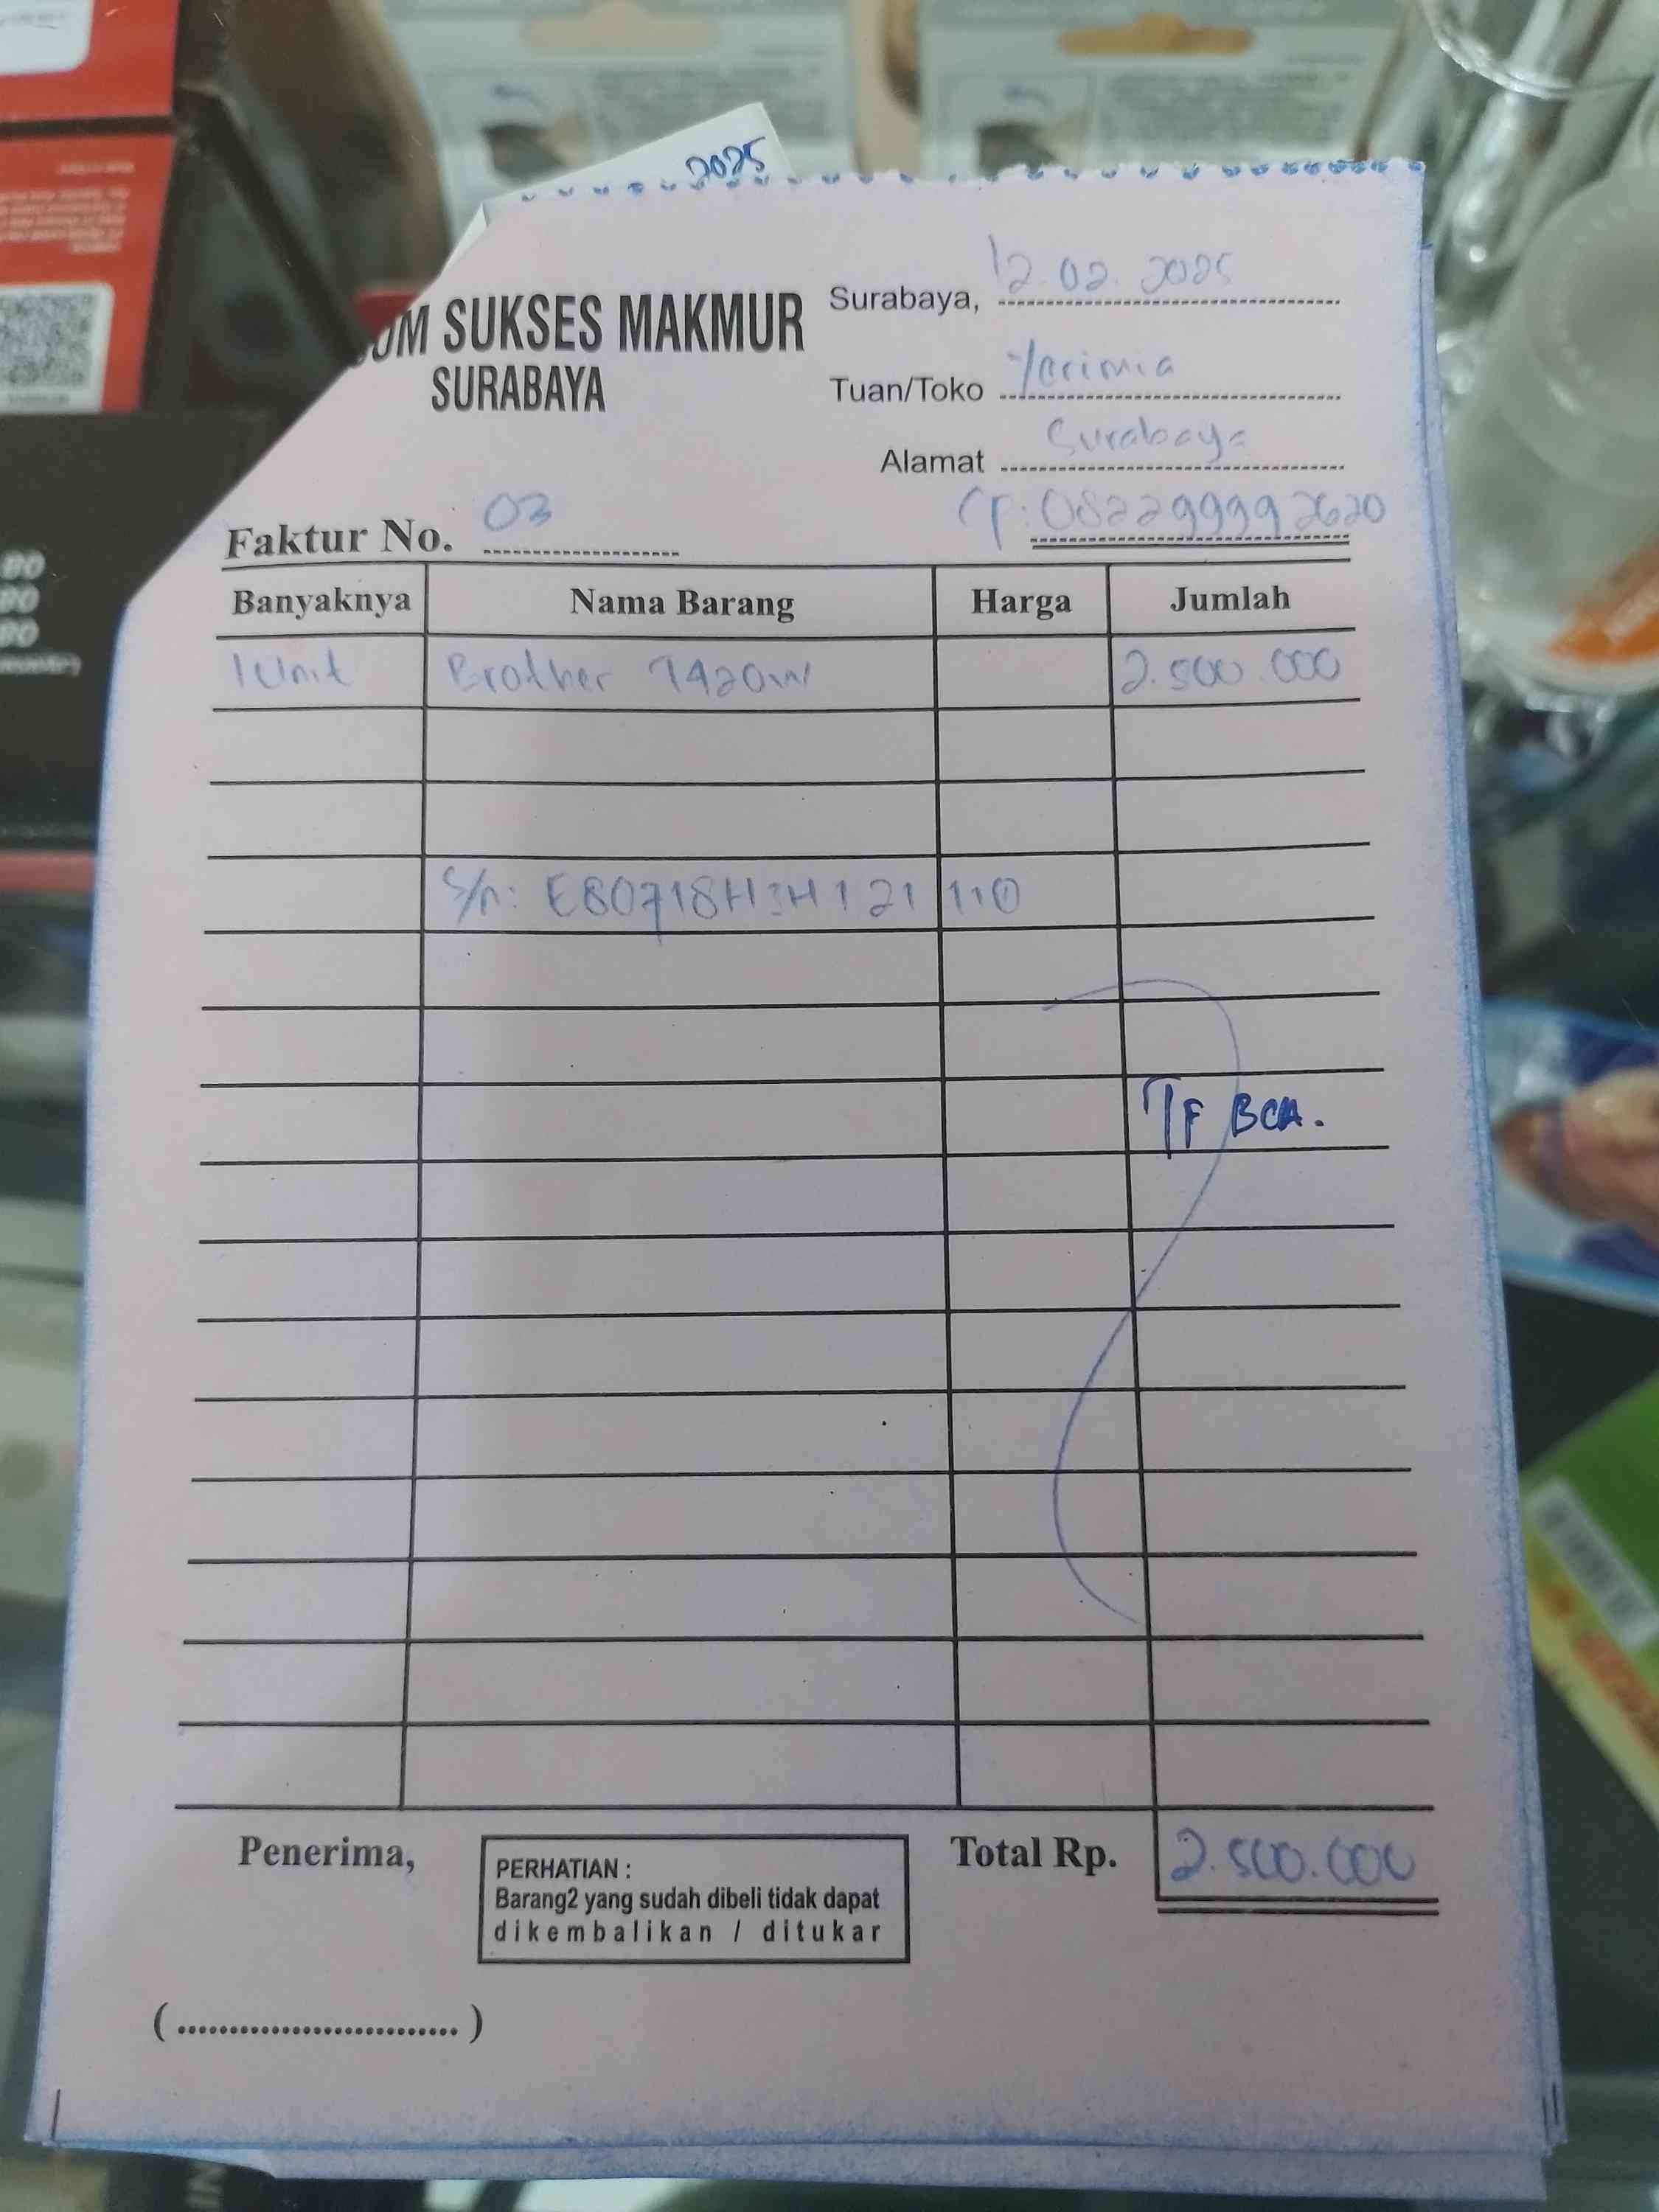 2025
OM SUKSES MAKMUR
SURABAYA
Surabaya, 12.02.2025
Tuan/Toko Yerimia
Alamat Surabaya
Faktur No. 03
CP: 082299992620
Banyaknya Nama Barang Harga Jumlah
1 Unit Brother T420W 2.500.000
S/n: E80718H3H121110
T/F BCA.
Penerima,
Total Rp. 2.500.000
PERHATIAN :
Barang2 yang sudah dibeli tidak dapat
dikembalikan / ditukar
(...........................)